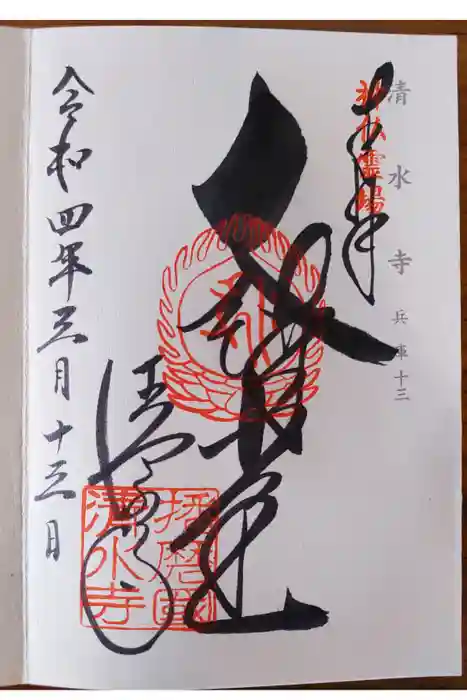 清水寺 兵庫十三
神仏霊場
奉拝
清水寺
播磨國
清水寺
令和四年三月十三日